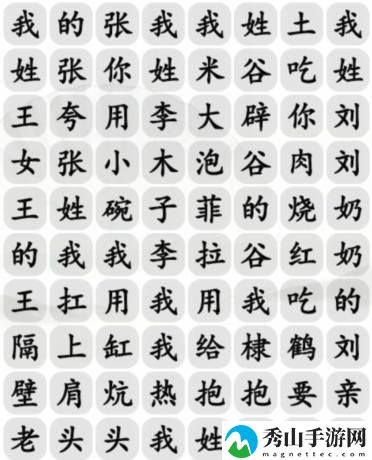 我的张我我姓土我
姓张你姓米谷吃姓
王夸用李大辟你刘
女张小木泡谷肉刘
王姓碗子菲的烧奶
的我我李拉谷红奶
王扛用我用我吃的
隔上缸我给棣鹤刘
壁肩炕热抱抱要亲
老头头我姓
秀山手游网
magnettec.com